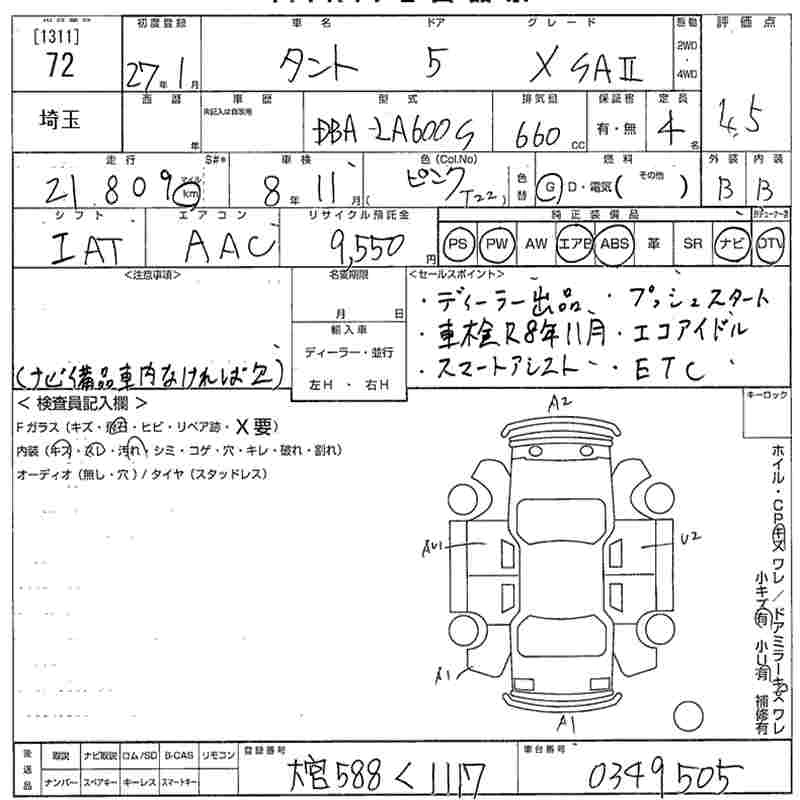 [1311]
72
初度登録
27年1月
車名
タント
ドア
5
グレード
X SAⅡ
駆動
2WD
4WD
評価点
4.5
埼玉
西暦
年
車歴
未記入は自家用
型式
DBA-LA600S
排気量
660 CC
保証書
有・無
定員
4名
走行
21809 マイル km
S#*
車検
8年11月
色(Col.No)
ピンク
( T22 )
色替
燃料
G D・電気( その他 )
外装
B
内装
B
シフト
IAT
エアコン
AAC
リサイクル預託金
9,550円
純正装備品
PS PW AW エアB ABS 革 SR ナビ DTV
<注意事項>
(ナビ備品車内なければ欠)
名変期限
月 日
輸入車
ディーラー・並行
左H ・ 右H
<セールスポイント>
・ディーラー出品 ・プッシュスタート
・車検R8年11月 ・エコアイドル
・スマートアシスト ・ETC
< 検査員記入欄 >
Fガラス(キズ・飛石・ヒビ・リペア跡・X要)
内装(キズ・スレ・汚れ・シミ・コゲ・穴・キレ・破れ・割れ)
オーディオ(無し・穴)/タイヤ(スタッドレス)
キーロック
A2
AU1
U2
A1
A1
ホイル・CPキズ ワレ/ドアミラーキズ ワレ
小キズ有 小U有 補修有
後送品
取説 ナビ取説 ロム/SD B-CAS リモコン
ナンバー スペアキー キーレス スマートキー
登録番号
大宮588く1117
車台番号
0349505